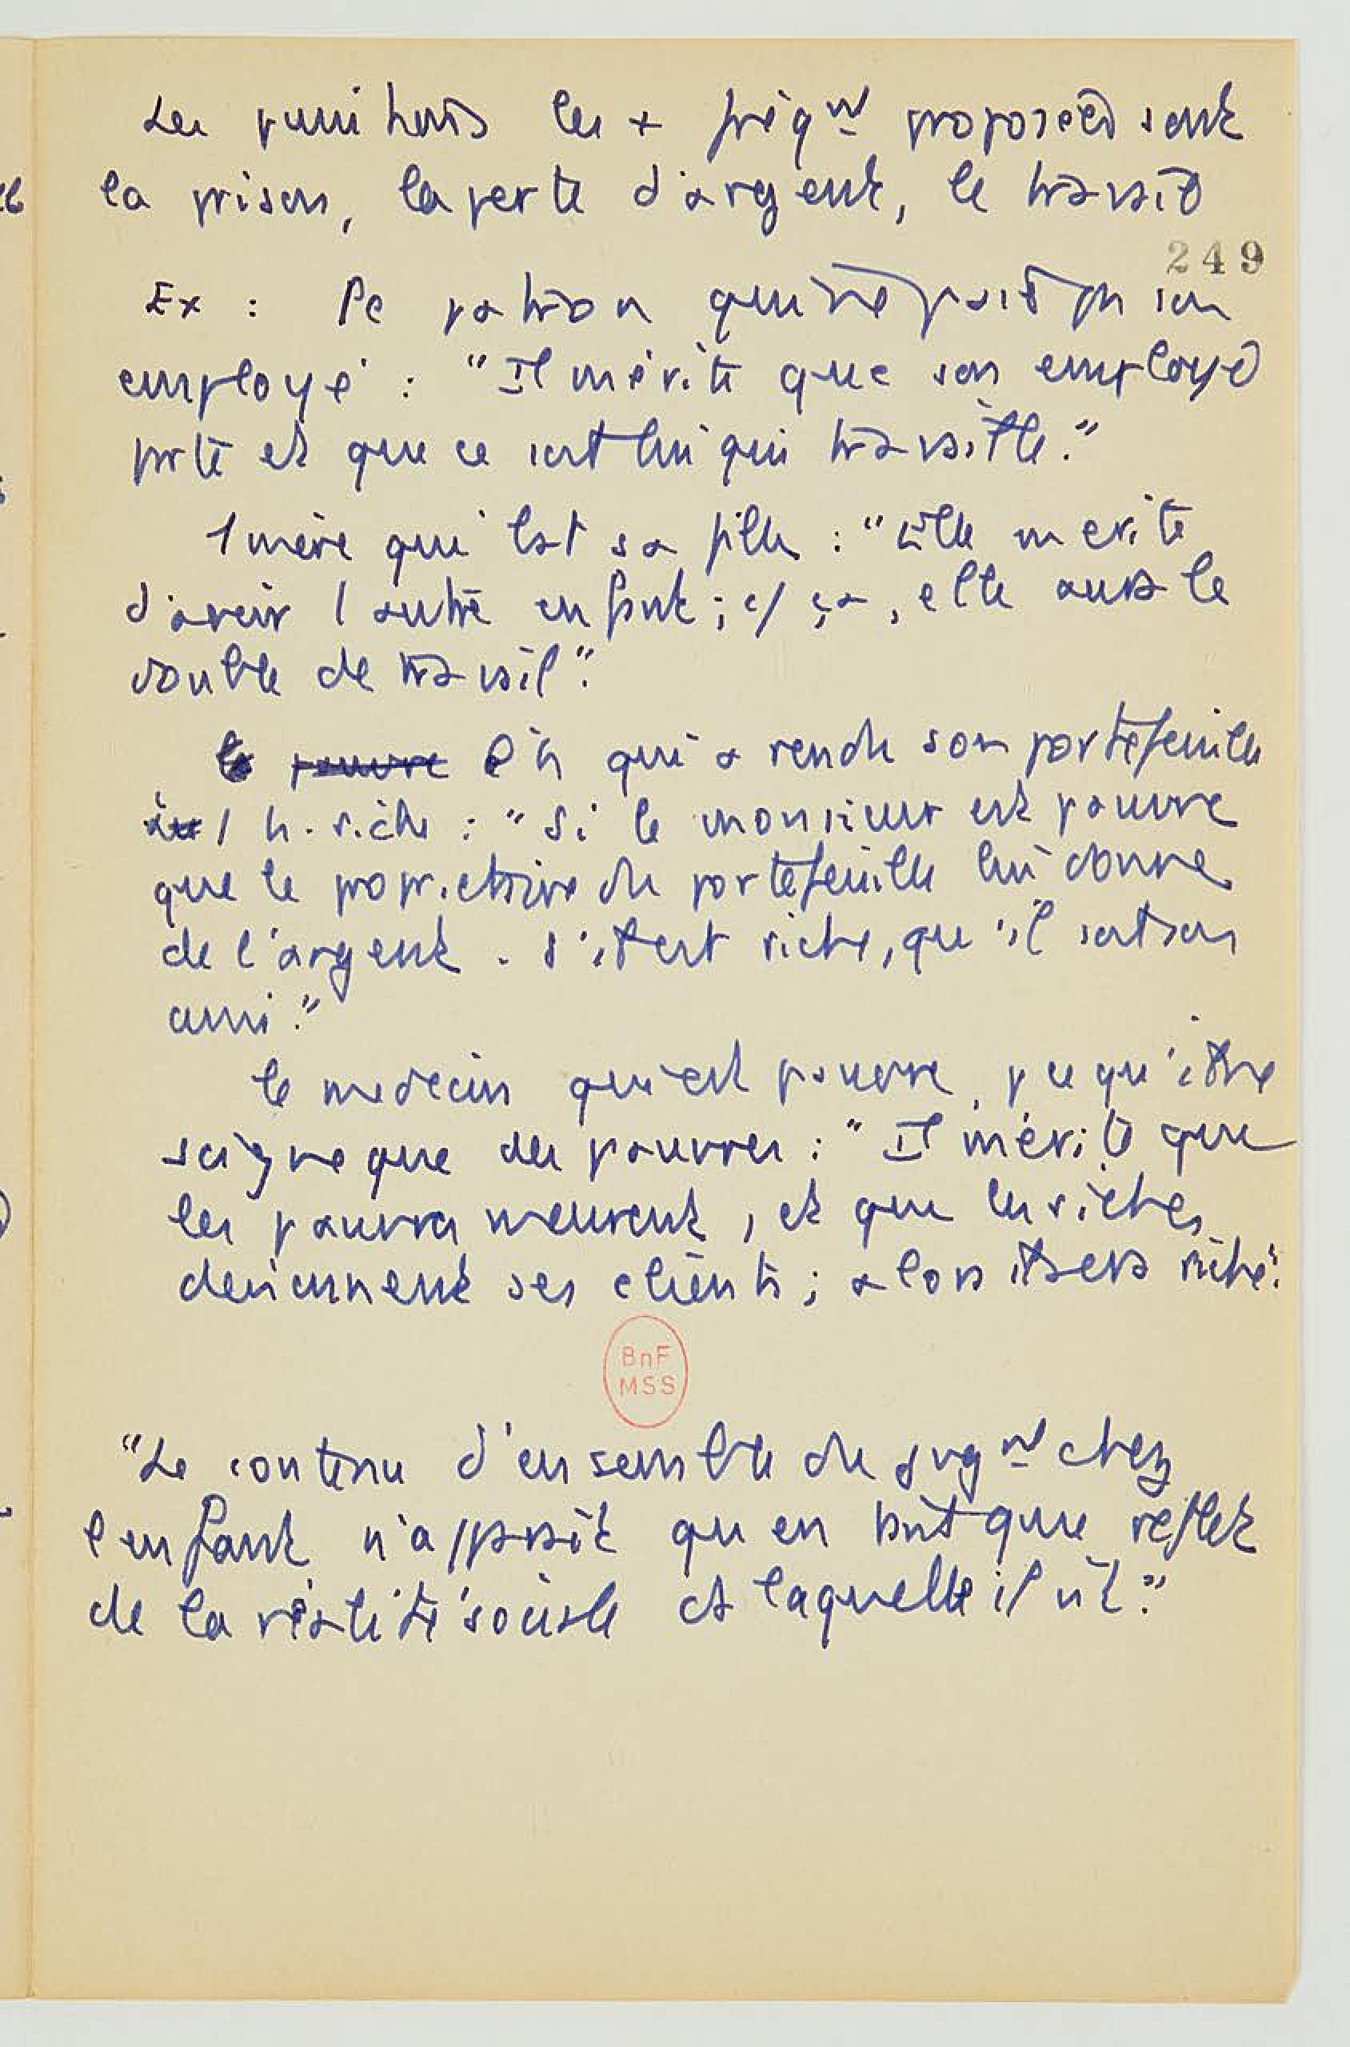 Les punitions les + fréqnt proposées sont
la prison, la perte d'argent, le travail
249
Ex : Le patron qui ne paie pas son
employé : "Il mérite que son employé
parte et que ce soit lui qui travaille."
1 mère qui bat sa fille : "Elle mérite
d'avoir 1 autre enfant ; c/ ça, elle aura le
double de travail".
le pauvre l'h qui a rendu son portefeuille
au 1 h. riche : "Si le monsieur est pauvre
que le propriétaire du portefeuille lui donne
de l'argent. S'il est riche, qu'il soit son
ami."
le médecin qui est pauvre, pcequ'il ne
soigne que des pauvres : "Il mérite que
les pauvres meurent, et que les riches
deviennent ses clients ; alors il sera riche".
BnF
MSS
"Le contenu d'ensemble du jugnt chez
l'enfant n'apparaît qu'en tant que reflet
de la réalité sociale ds laquelle il vit."